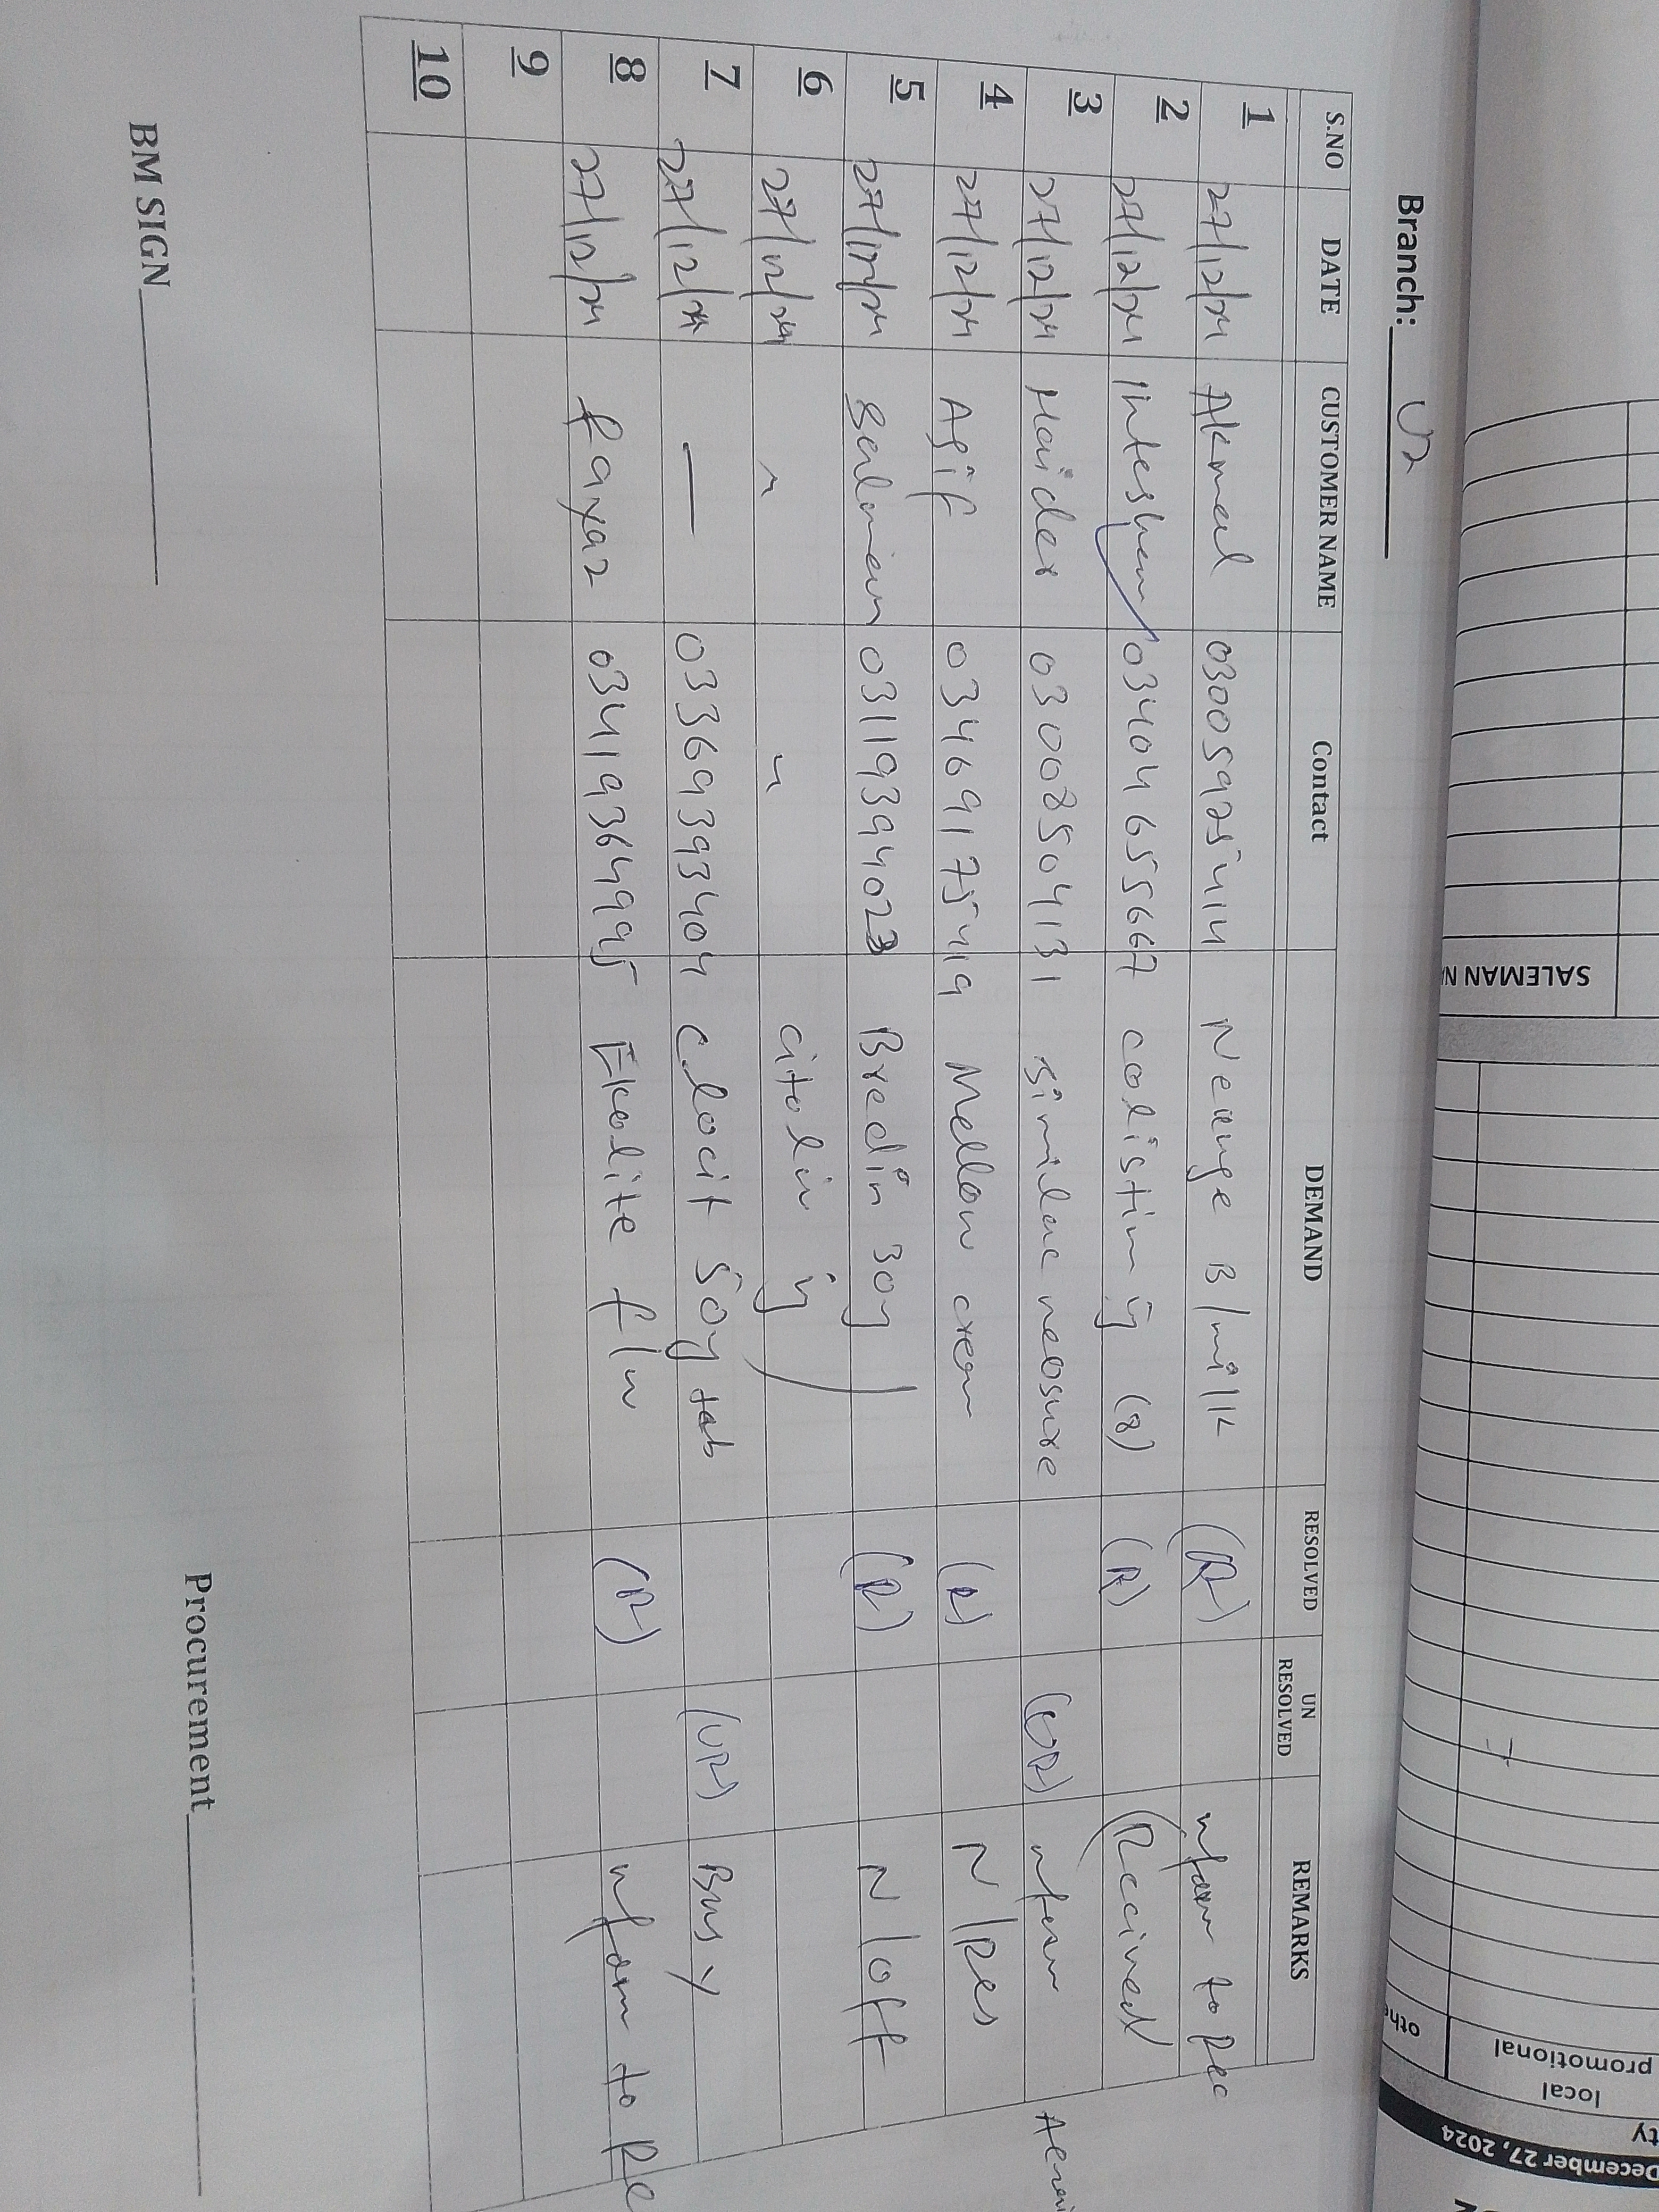 Branch: U2
S.NO DATE CUSTOMER NAME Contact DEMAND RESOLVED UN RESOLVED REMARKS
1 27/12/24 Akmal 03005925414 B/milk (R) inform to Rec
2 27/12/24 03404655667 colistin inj (8) (R) (Received
3 27/12/24 Haider 03008504131 similac neosure (UR) inform
4 27/12/24 Asif 03469175419 Mellow cream (R) N/Res
5 27/12/24 Salman 0311939402 Bredin 30y (R) N/off
6 27/12/24 " " citolin inj
7 27/12/24 — 03369393404 clocit 50y tab (UR) Busy
8 27/12/24 fayaz 03419364995 Ekalite f/w (R) inform to Re
9
10
BM SIGN
Procurement
SALEMAN
local
promotional
December 27, 2024